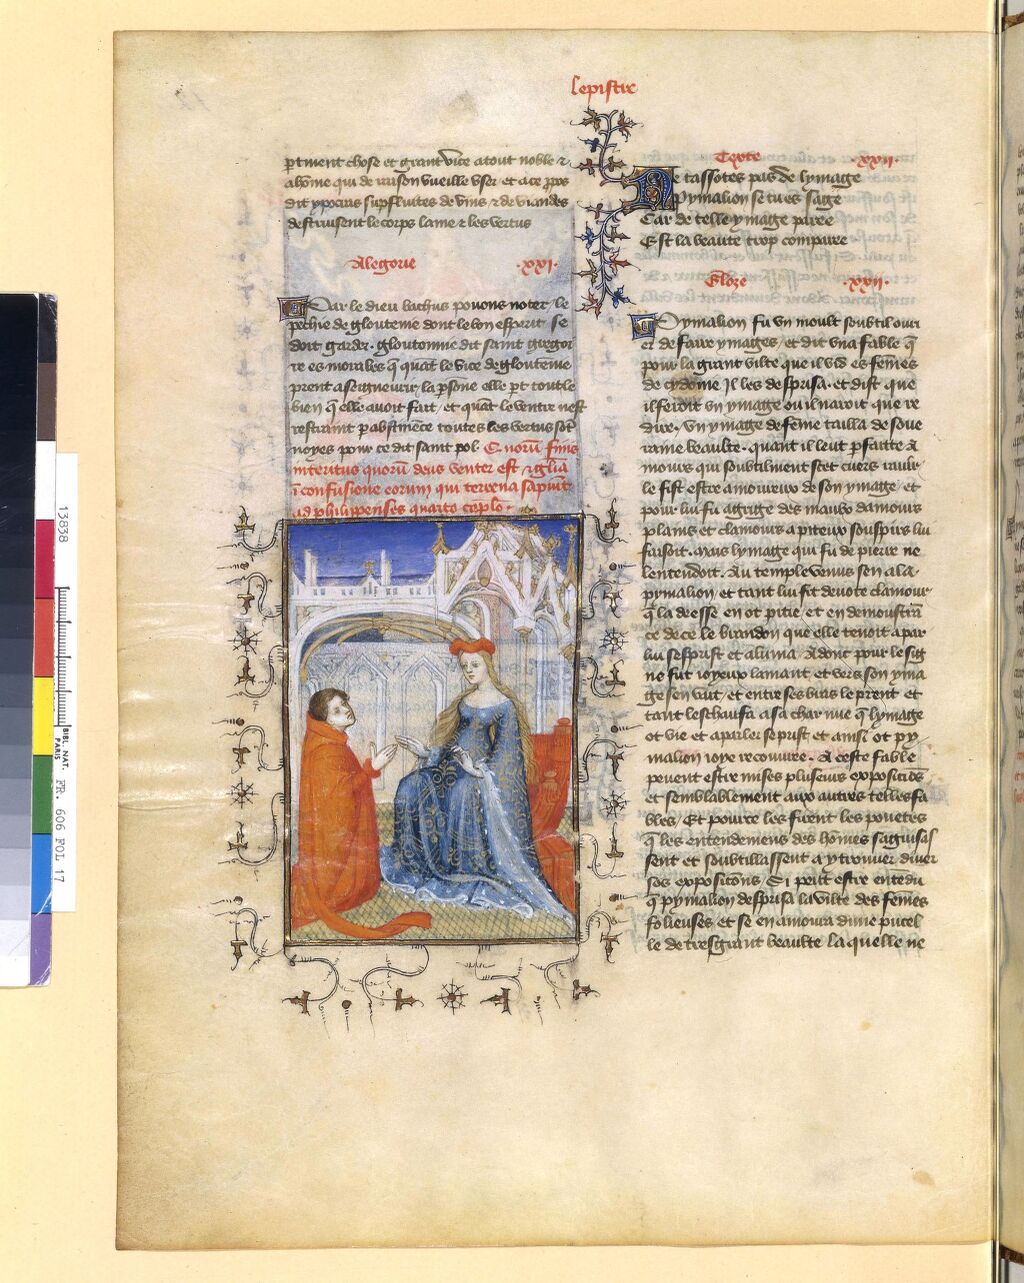 Lepistre
ptinent chose et grant vice a tout noble ⁊
a home qui de raison vueille user et a ce ppos
dit ypocras supfluites de vins ⁊ de viandes
destruisent le corps lame ⁊ les vertus
Alegorie .xxi.
Par le dieu bachus povons noter le
pechie de gloutenie dont le bon esperit se
doit garder. gloutonnie dit saint gregoi
re es morales q quāt le vice de gloutenie
prent a seigneurir la psone elle pt tout le
bien q elle avoit fait. et quāt le ventre nest
restraint p abstinēce toutes les vertus sōt
noyes pour ce dit saint pol. Quorū finis
interitus quorū deus venter est ⁊ glīa
ī confusione eorum qui terrena sapiūt
ad philipenses quarto caplo.
Texte .xxii.
Ne tassotes pas de lymage
Pymalion se tu es sage
Car de telle ymage paree
Est la beaute trop comparee
Gloze .xxii.
Pymalion fu un moult soubtil ouvri
er de faire ymages et dit une fable q
pour la grant vilte que il vid es fēmes
de cydoine Il les desprisa. et dist que
il feroit un ymage ou il naroit que re
dire. Un ymage de fēme tailla de souve
raine beaulte. quant il leut pfaitte a
mours qui soubtilment scet cuers ravir
le fist estre amoureux de son ymage et
pour lui fu agrige des maulx damours
plains et clamours a piteux souspirs lui
faisoit. mais lymage qui fu de pierre ne
lentendoit. Au temple venus sen ala
pymalion. et tant lui fit devote clamour
q la deesse en ot pitie et en demonstrā
ce de ce le brandon que elle tenoit a par
lui sesprist et aluma Adont pour le sig
ne fut joyeux lamant et vers son yma
ge sen vait et entre ses bras le prent et
tant leschaufa a sa char nue q lymage
ot vie et a parler se prist et ainsi ot py
malion joye recouvree. A ceste fable
pevent estre mises plusieurs exposiciōs
et semblablement aux autres telles fa
bles / Et pource les firent les pouetes
q les entendemens des hōmes saguisas
sent et soubtillassent a y trouver diver
ses exposicōns Si peut estre entēdu
q pymalion desprisa la vilte des fēmes
folieuses et se enamoura dune pucel
le de tresgrant beaulte la quelle ne
13838
BIBL. NAT.
PARIS
FR. 606 FOL 17